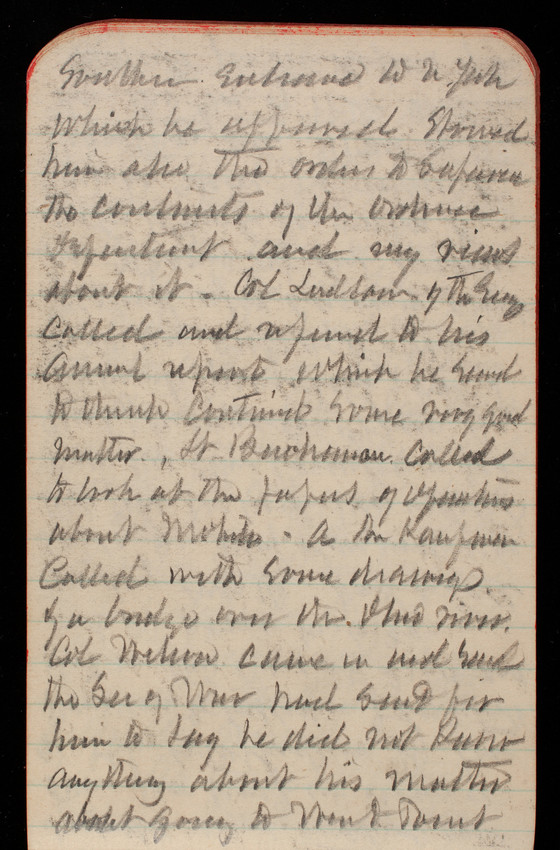 Southern Entrance to N York
which he approved. Showed
him also the orders to
the contracts of the Ordnance
Department and my views
about it. Col Ludlow of the Engs
called and referred to his
annual report which he said
to think contained some very good
matter. Lt Buchanan called
to look at the papers of operations
about Mobile. A Mr Kaufman
called with some drawings
of a bridge over the Ohio river.
Col Wilson came in and said
the Sec of War had sent for
him to say he did not know
anything about his matter
about going to West Point